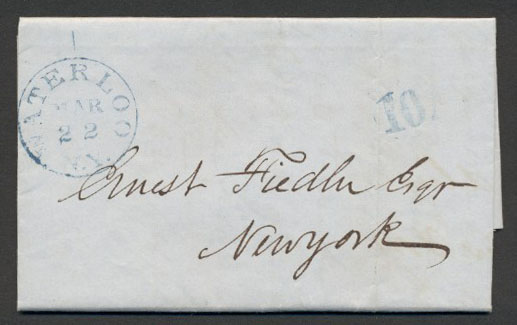 WATERLOO
MAR
22
N.Y.
10
Ernest Fiedler Esqr
Newyork